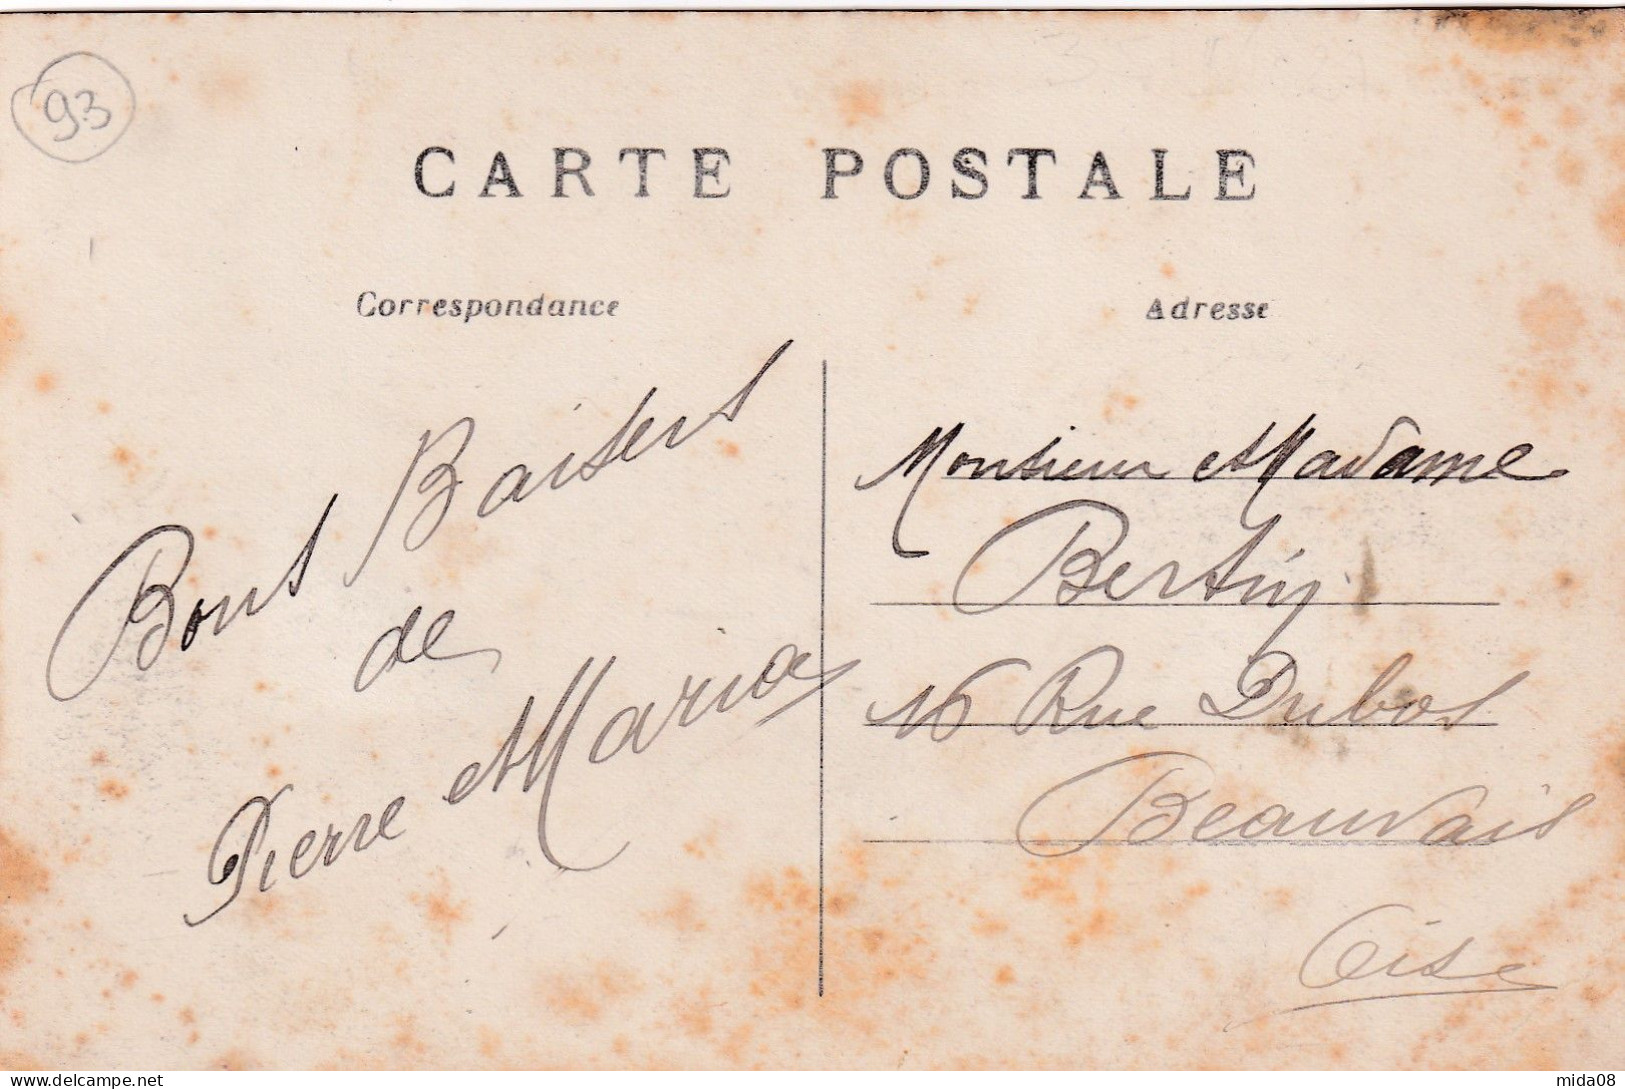 93
CARTE POSTALE
Correspondance
Bons Baisers
de
Pierre et Maria
Adresse
Monsieur et Madame
Bertin
16 Rue Dubos
Beauvais
Oise
delcampe.net
mida08